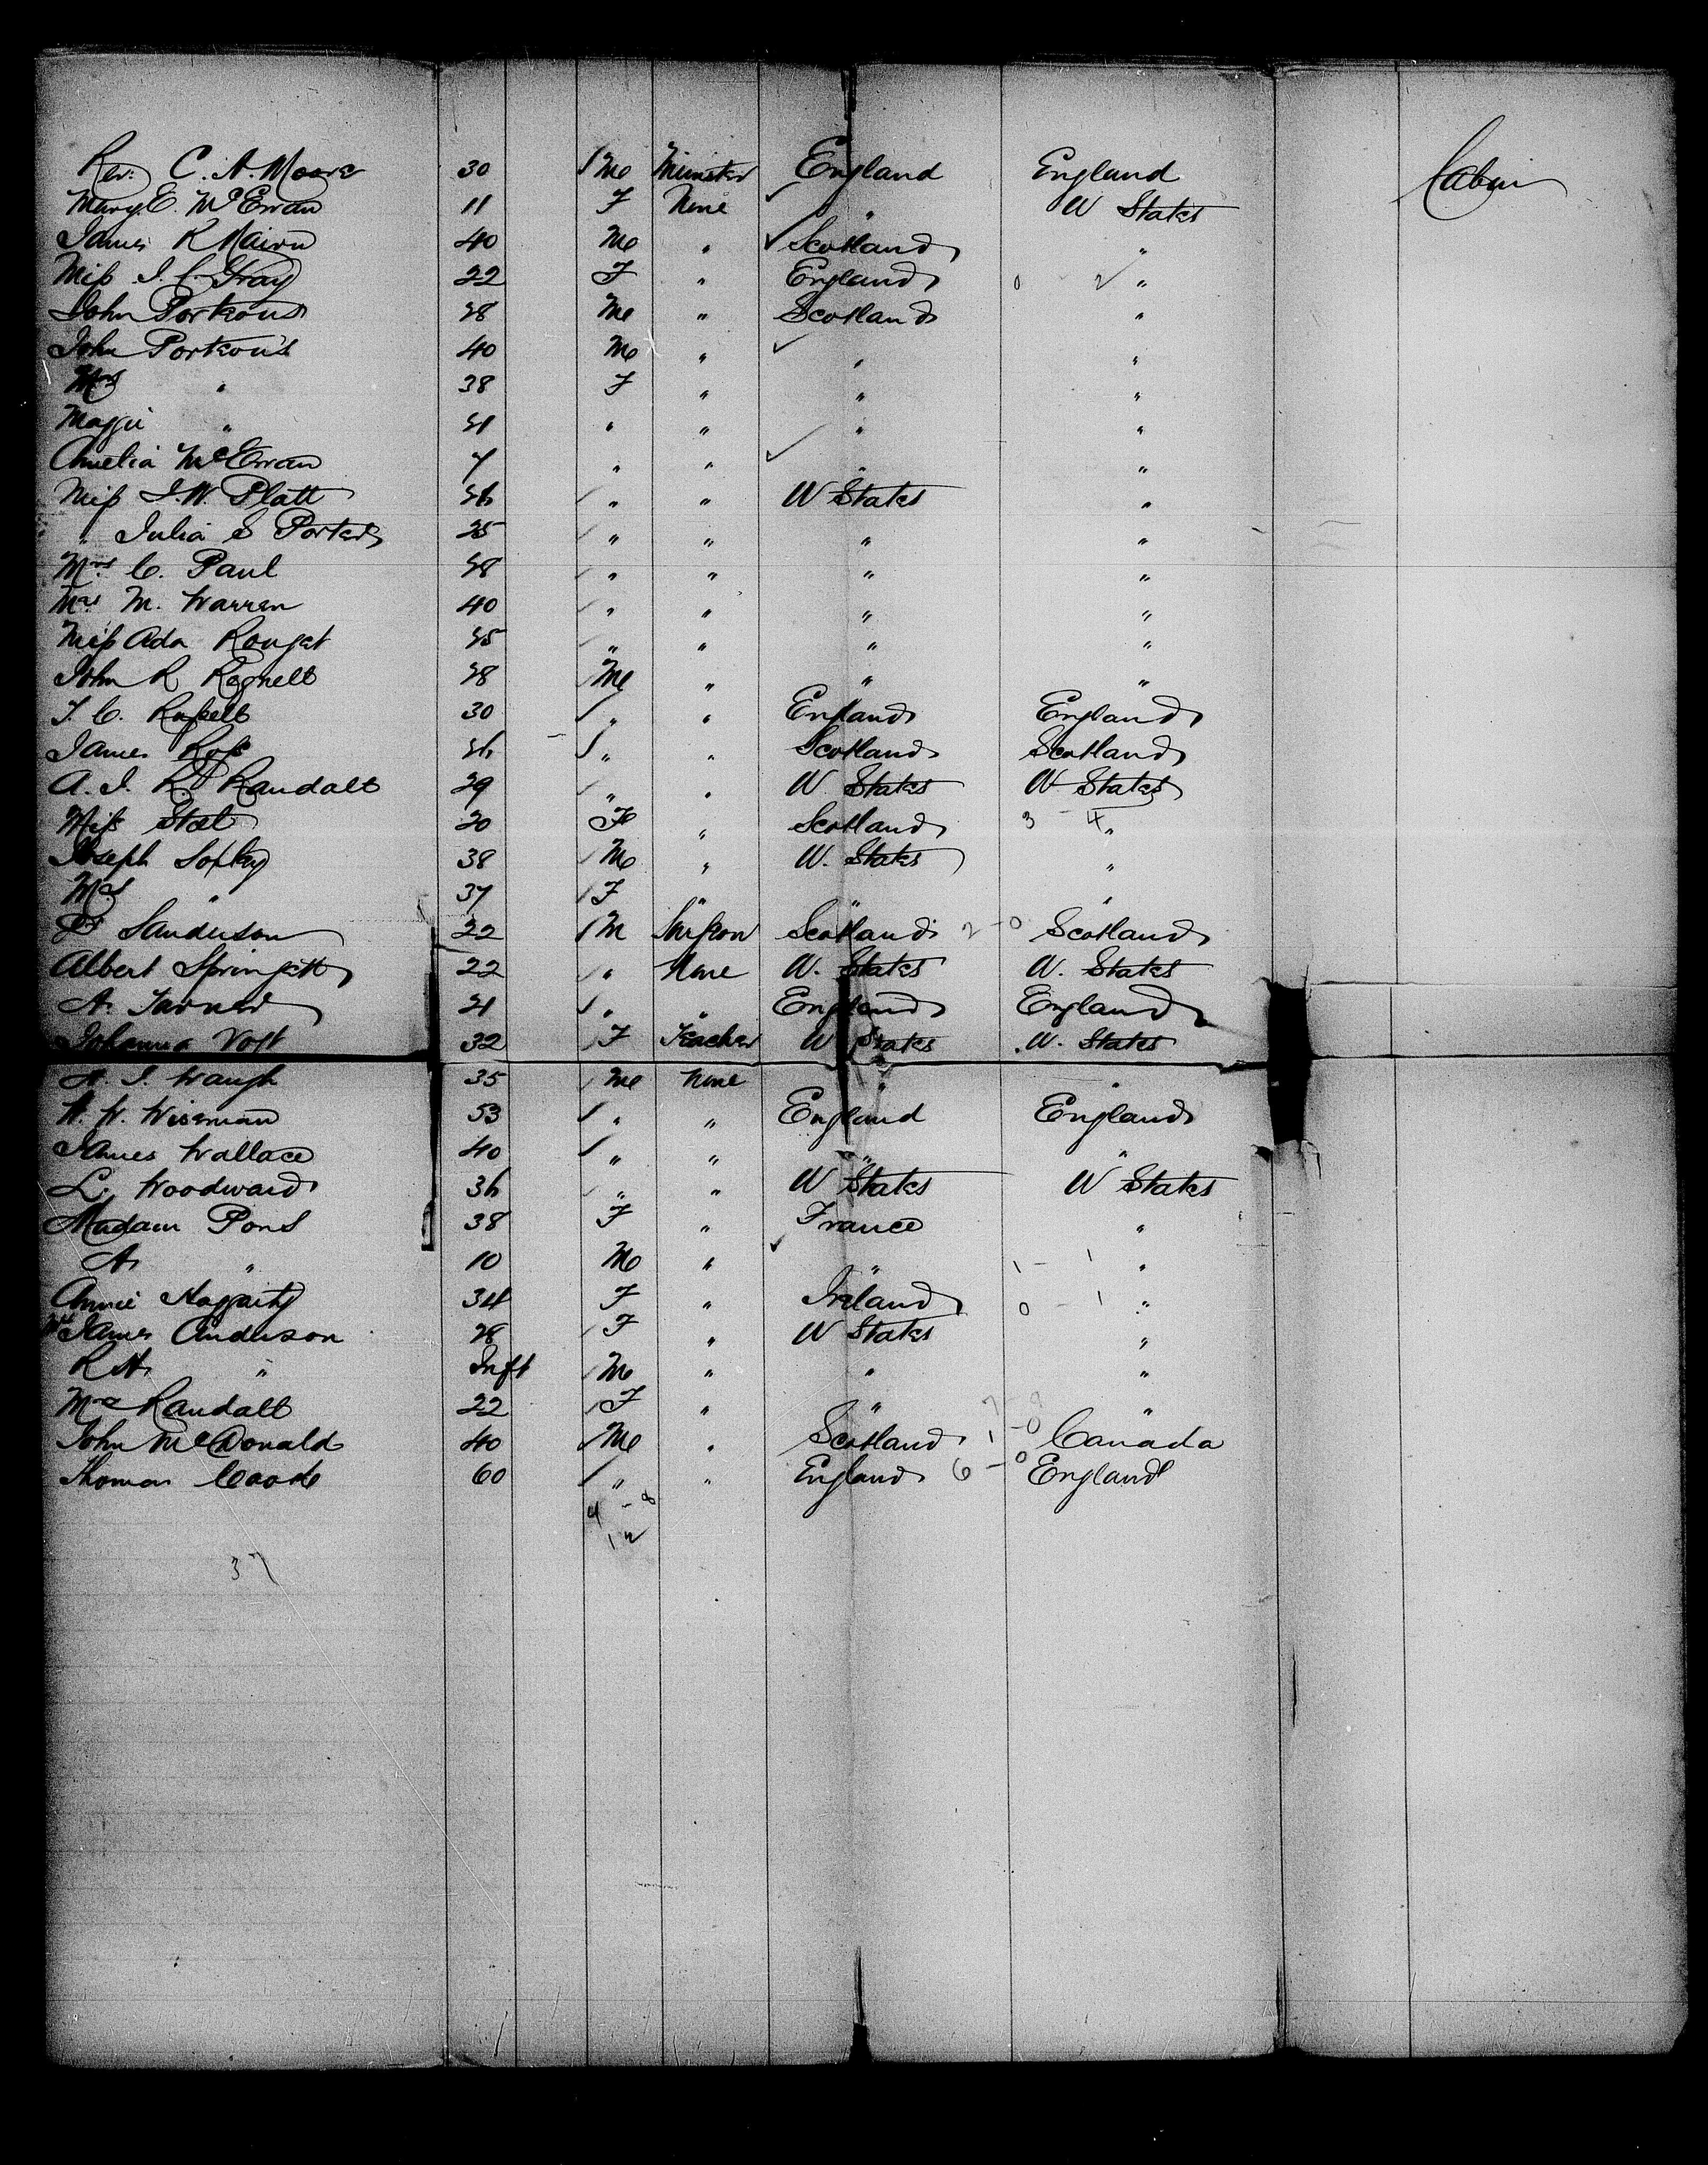 Rev: C. A. Moore 30 M Minister England England Cabin
Mary E. McEwan 11 F None " U States
James R Nairn 40 M " Scotland "
Miss J. C. Gray 22 F " England 0 2 "
John Porteous 28 M " Scotland "
John Porteous 40 M " " "
Mrs " 38 F " " "
Maggie " 21 " " " "
Amelia McEwan 7 " " " "
Miss J. W. Platt 26 " " U States "
" Julia S Porter 25 " " " "
Mrs C. Paul 28 " " " "
Mrs M. Warren 40 " " " "
Miss Ada Rouget 25 " " " "
John R Regnell 28 M " " "
T. C. Russell 30 " " England England
James Ross 26 " " Scotland Scotland
A. J. R Randall 29 " " U States U States
Miss Steel 20 F " Scotland 3 - 4 "
Joseph 38 M " U. States "
Mrs " 37 F " " "
Sanderson 22 M Surgeon Scotland 2 - 0 Scotland
Albert Springett 22 " None U. States U. States
A. Turner 21 " " England England
Johanna Vost 32 F Teacher U States U. States
A. J. Waugh 35 M None " "
W. W. Wiseman 53 " " England England
James Wallace 40 " " " "
L. Woodward 36 " " U States U States
Madam Pons 38 F " France "
A. " 10 M " " 1 - 1 "
Annie Haggarty 34 F " Ireland 0 - 1 "
James Anderson 28 F " U States "
R A. " Inft M " " "
Mrs Randall 22 F " " "
John McDonald 40 M " Scotland 1 - 0 Canada
Thomas Coode 60 " " England 6 - 0 England
4 - 8
12
37